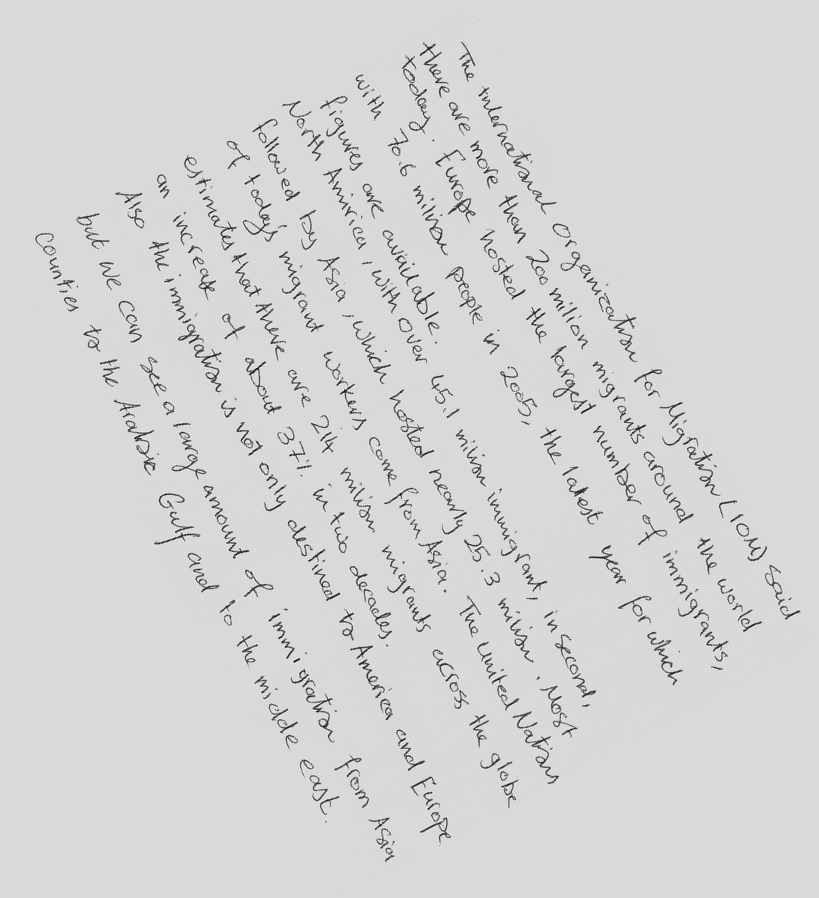 The international organization for Migration (IOM) said
there are more than 200 milion migrants around the world
today. Europe hosted the largest number of immigrants,
with 70.6 milion people in 2005, the latest year for which
figures are available.
North Amirica, with over 45.1 milion immigrant, in second,
followed by Asia, which hosted nearly 25.3 milion. Most
of today's migrant workers come from Asia. The United Nations
estimates that there are 214 milion migrants across the globe
an increase of about 37% in two decades.
Also the immigration is not only destined to America and Europe
but we can see a large amount of immigration from Asia
counties to the Arabic Gulf and to the middle east.